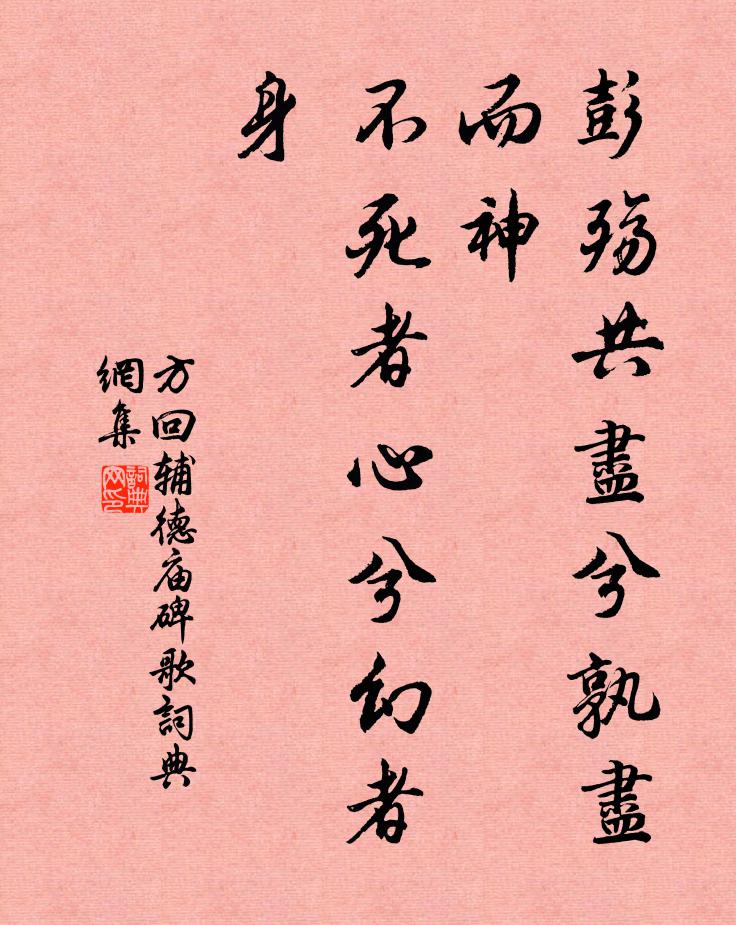 彭殤共盡兮孰盡
而神
不死者心兮幻者
身
方回辅德庙碑歌詞典
網集
詞典
网印